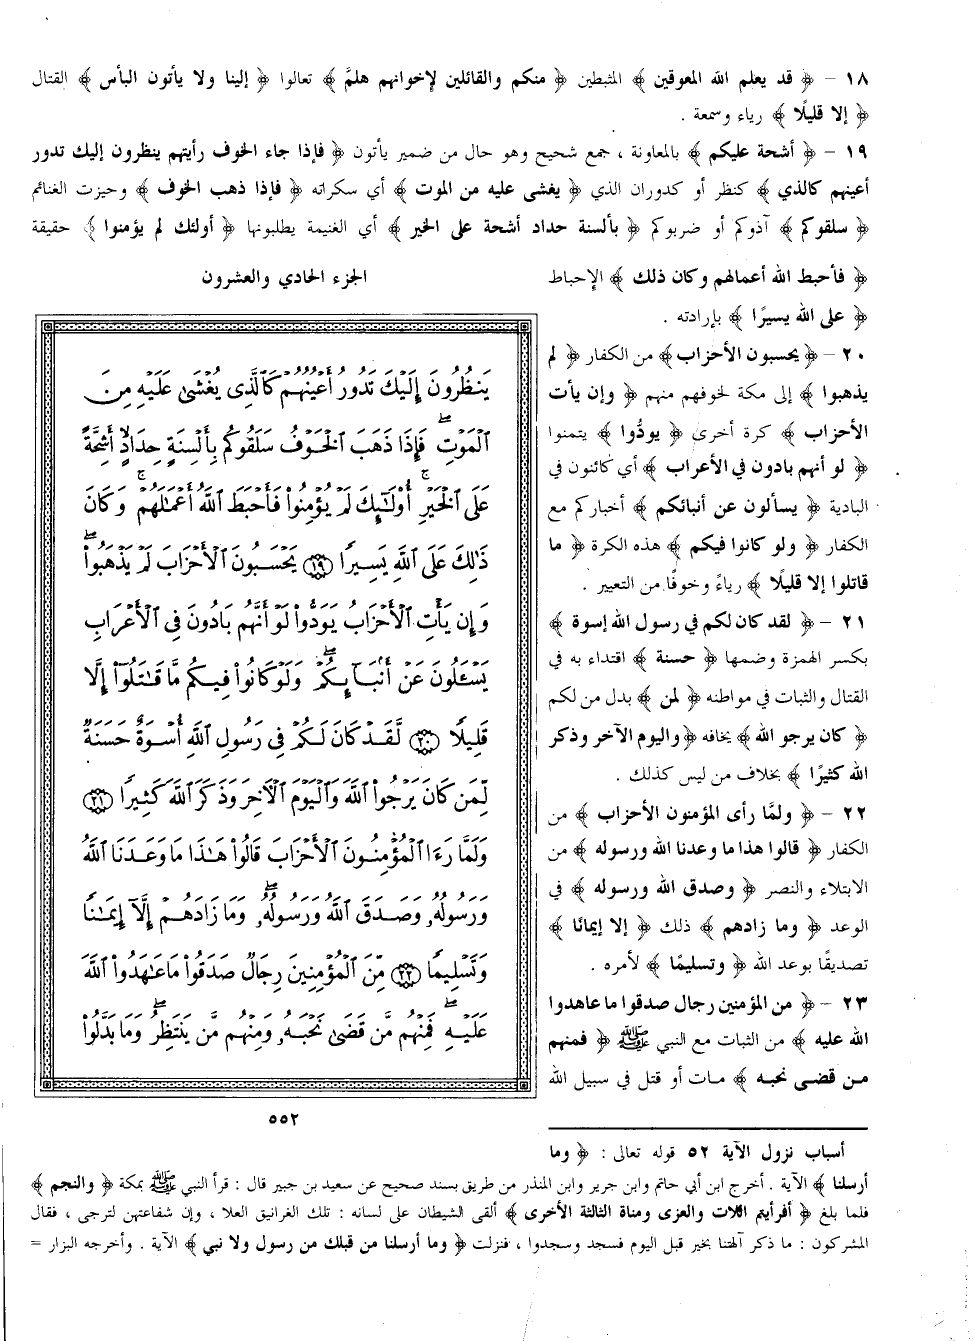 ١٨ – ﴿ قد يعلم الله المعوقين ﴾ المثبطين ﴿ منكم والقائلين لإخوانهم هلمَّ ﴾ تعالوا ﴿ إلينا ولا يأتون البأس ﴾ القتال
﴿ إلا قليلًا ﴾ رياء وسمعة .
١٩ – ﴿ أشحة عليكم ﴾ بالمعاونة ، جمع شحيح وهو حال من ضمير يأتون ﴿ فإذا جاء الخوف رأيتهم ينظرون إليك تدور
أعينهم كالذي ﴾ كنظر أو كدوران الذي ﴿ يغشى عليه من الموت ﴾ أي سكراته ﴿ فإذا ذهب الخوف ﴾ وحيزت الغنائم
﴿ سلقوكم ﴾ آذوكم أو ضربوكم ﴿ بألسنة حداد أشحة على الخير ﴾ أي الغنيمة يطلبونها ﴿ أولئك لم يؤمنوا ﴾ حقيقة
﴿ فأحبط الله أعمالهم وكان ذلك ﴾ الإحباط
﴿ على الله يسيرًا ﴾ بإرادته .
٢٠ – ﴿ يحسبون الأحزاب ﴾ من الكفار ﴿ لم
يذهبوا ﴾ إلى مكة لخوفهم منهم ﴿ وإن يأت
الأحزاب ﴾ كرة أخرى ﴿ يودُّوا ﴾ يتمنوا
﴿ لو أنهم بادون في الأعراب ﴾ أي كائنون في
البادية ﴿ يسألون عن أنبائكم ﴾ أخباركم مع
الكفار ﴿ ولو كانوا فيكم ﴾ هذه الكرة ﴿ ما
قاتلوا إلا قليلًا ﴾ رياءً وخوفًا من التعيير .
٢١ – ﴿ لقد كان لكم في رسول الله إسوة ﴾
بكسر الهمزة وضمها ﴿ حسنة ﴾ اقتداء به في
القتال والثبات في مواطنه ﴿ لمن ﴾ بدل من لكم
﴿ كان يرجو الله ﴾ يخافه ﴿ واليوم الآخر وذكر
الله كثيرًا ﴾ بخلاف من ليس كذلك .
٢٢ – ﴿ ولمَّا رأى المؤمنون الأحزاب ﴾ من
الكفار ﴿ قالوا هذا ما وعدنا الله ورسوله ﴾ من
الابتلاء والنصر ﴿ وصدق الله ورسوله ﴾ في
الوعد ﴿ وما زادهم ﴾ ذلك ﴿ إلا إيمانًا ﴾
تصديقًا بوعد الله ﴿ وتسليمًا ﴾ لأمره .
٢٣ – ﴿ من المؤمنين رجال صدقوا ما عاهدوا
الله عليه ﴾ من الثبات مع النبي ﷺ ﴿ فمنهم
من قضى نحبه ﴾ مات أو قتل في سبيل الله
الجزء الحادي والعشرون
يَنظُرُونَ إِلَيْكَ تَدُورُ أَعْيُنُهُمْ كَٱلَّذِى يُغْشَىٰ عَلَيْهِ مِنَ
ٱلْمَوْتِ ۖ فَإِذَا ذَهَبَ ٱلْخَوْفُ سَلَقُوكُم بِأَلْسِنَةٍ حِدَادٍ أَشِحَّةً
عَلَى ٱلْخَيْرِ ۚ أُو۟لَٰٓئِكَ لَمْ يُؤْمِنُوا۟ فَأَحْبَطَ ٱللَّهُ أَعْمَٰلَهُمْ ۚ وَكَانَ
ذَٰلِكَ عَلَى ٱللَّهِ يَسِيرًا ١٩ يَحْسَبُونَ ٱلْأَحْزَابَ لَمْ يَذْهَبُوا۟ ۖ
وَإِن يَأْتِ ٱلْأَحْزَابُ يَوَدُّوا۟ لَوْ أَنَّهُم بَادُونَ فِى ٱلْأَعْرَابِ
يَسْـَٔلُونَ عَنْ أَنۢبَآئِكُمْ ۖ وَلَوْ كَانُوا۟ فِيكُم مَّا قَٰتَلُوٓا۟ إِلَّا
قَلِيلًا ٢٠ لَّقَدْ كَانَ لَكُمْ فِى رَسُولِ ٱللَّهِ أُسْوَةٌ حَسَنَةٌ
لِّمَن كَانَ يَرْجُوا۟ ٱللَّهَ وَٱلْيَوْمَ ٱلْءَاخِرَ وَذَكَرَ ٱللَّهَ كَثِيرًا ٢١
وَلَمَّا رَءَا ٱلْمُؤْمِنُونَ ٱلْأَحْزَابَ قَالُوا۟ هَٰذَا مَا وَعَدَنَا ٱللَّهُ
وَرَسُولُهُۥ وَصَدَقَ ٱللَّهُ وَرَسُولُهُۥ ۚ وَمَا زَادَهُمْ إِلَّآ إِيمَٰنًا
وَتَسْلِيمًا ٢٢ مِّنَ ٱلْمُؤْمِنِينَ رِجَالٌ صَدَقُوا۟ مَا عَٰهَدُوا۟ ٱللَّهَ
عَلَيْهِ ۖ فَمِنْهُم مَّن قَضَىٰ نَحْبَهُۥ وَمِنْهُم مَّن يَنتَظِرُ ۖ وَمَا بَدَّلُوا۟
٥٥٢
أسباب نزول الآية ٥٢ قوله تعالى : ﴿ وما
أرسلنا ﴾ الآية . أخرج ابن أبي حاتم وابن جرير وابن المنذر من طريق بسند صحيح عن سعيد بن جبير قال : قرأ النبي ﷺ بمكة ﴿ والنجم ﴾
فلما بلغ ﴿ أفرأيتم اللات والعزى ومناة الثالثة الأخرى ﴾ ألقى الشيطان على لسانه : تلك الغرانيق العلا ، وإن شفاعتهن لترجى ، فقال
المشركون : ما ذكر آلهتنا بخير قبل اليوم فسجد وسجدوا ، فنزلت ﴿ وما أرسلنا من قبلك من رسول ولا نبي ﴾ الآية . وأخرجه البزار =